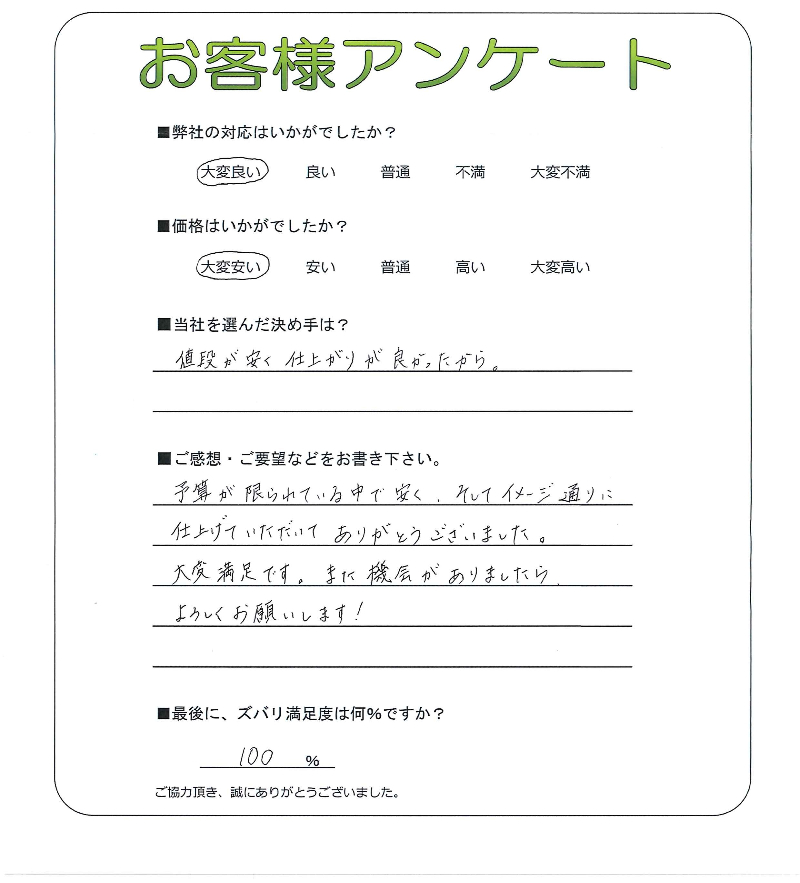 お客様アンケート
■弊社の対応はいかがでしたか？
大変良い 良い 普通 不満 大変不満
■価格はいかがでしたか？
大変安い 安い 普通 高い 大変高い
■当社を選んだ決め手は？
値段が安く仕上がりが良かったから。
■ご感想・ご要望などをお書き下さい。
予算が限られている中で安く、そしてイメージ通りに
仕上げていただいてありがとうございました。
大変満足です。また機会がありましたら、
よろしくお願いします！
■最後に、ズバリ満足度は何%ですか？
100 %
ご協力頂き、誠にありがとうございました。